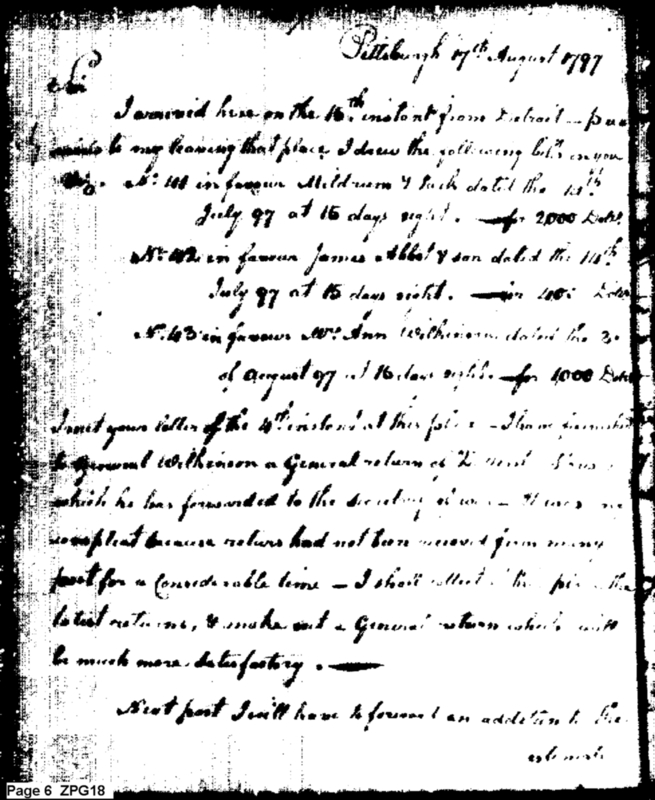 Pittsburgh 17th August 1797
Sir
I arrived here on the 16th instant from Detroit – previous
to my leaving that place, I drew the following bills on you
Viz. No. 41 in favour Meldrum & Park dated the 14th
July 97 at 15 days sight. — for 2,000 Dolls
No. 42 in favour James Abbot & son dated the 14th
July 97 at 15 days sight. — for 400 Dolls
No. 43 in favour Mrs Ann Wilkinson dated the
of August 97 at 15 days sight — for 1,000 Dolls
I met your letter of the 4th instant at this place – I have furnished
to General Wilkinson a General return of
which he has forwarded to the secretary of war – It was not
compleat because returns had not been received from many
post for a Considerable time – I shall collect at this place the
latest returns, & make out a General return which will
be much more satisfactory. —
Next post I will have to forward an addition to the
estimate
Page 6 ZPG18